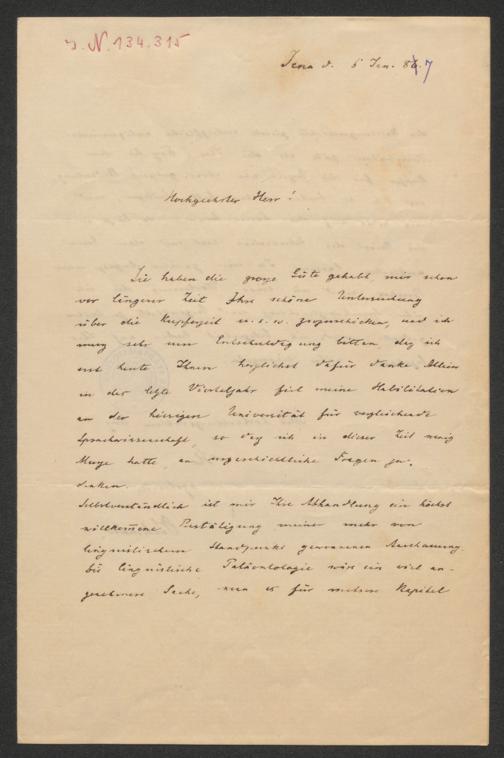 J. N. 134.315
Jena d. 5 Jan. 87
Hochgeehrter Herr!
Sie haben die große Güte gehabt, mir schon
vor längerer Zeit Ihre schöne Untersuchung
über die Kupferzeit u. s. w. zuzuschicken, und ich
muß sehr um Entschuldigung bitten, daß ich
erst heute Ihnen herzlichst dafür danke. Allein
in das letzte Vierteljahr fiel meine Habilitation
an der hiesigen Universität für vergleichende
Sprachwissenschaft, so daß ich in dieser Zeit wenig
Muße hatte, an urgeschichtliche Fragen zu
denken.
Selbstverständlich ist mir Ihre Abhandlung ein höchst
willkommene Bestätigung meiner mehr vom
linguistischen Standpunkt gewonnenen Anschauung.
Die linguistische Paläontologie wäre ein viel an-
genehmere Sache, wenn es für mehrere Kapitel